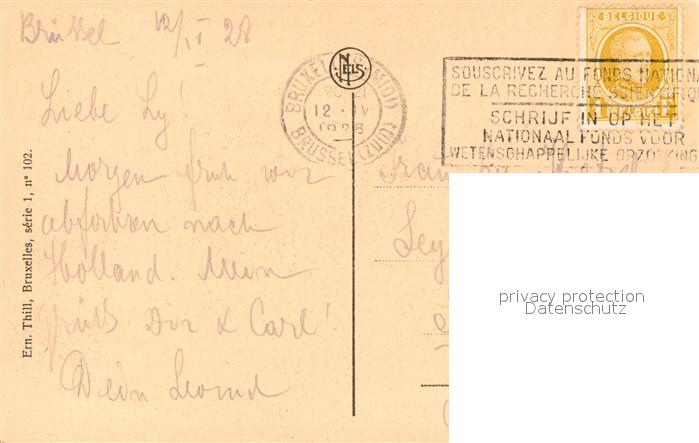 Brüssel 12/IV 28
Liebe Ly!
Morgen früh wir
abfahren nach
Holland. Mein
Gruß Dir & Carl!
Dein
NELS
BRUXELLES (MIDI)
12 IV
1928
BRUSSEL (ZUID)
BELGIQUE
SOUSCRIVEZ AU FONDS NATIONA
DE LA RECHERCHE SCIENTIFIQU
SCHRIJF IN OP HET
NATIONAAL FONDS VOOR
WETENSCHAPPELIJKE OPZOEKING
Frau
Ern. Thill, Bruxelles, série 1, n° 102.
privacy protection
Datenschutz